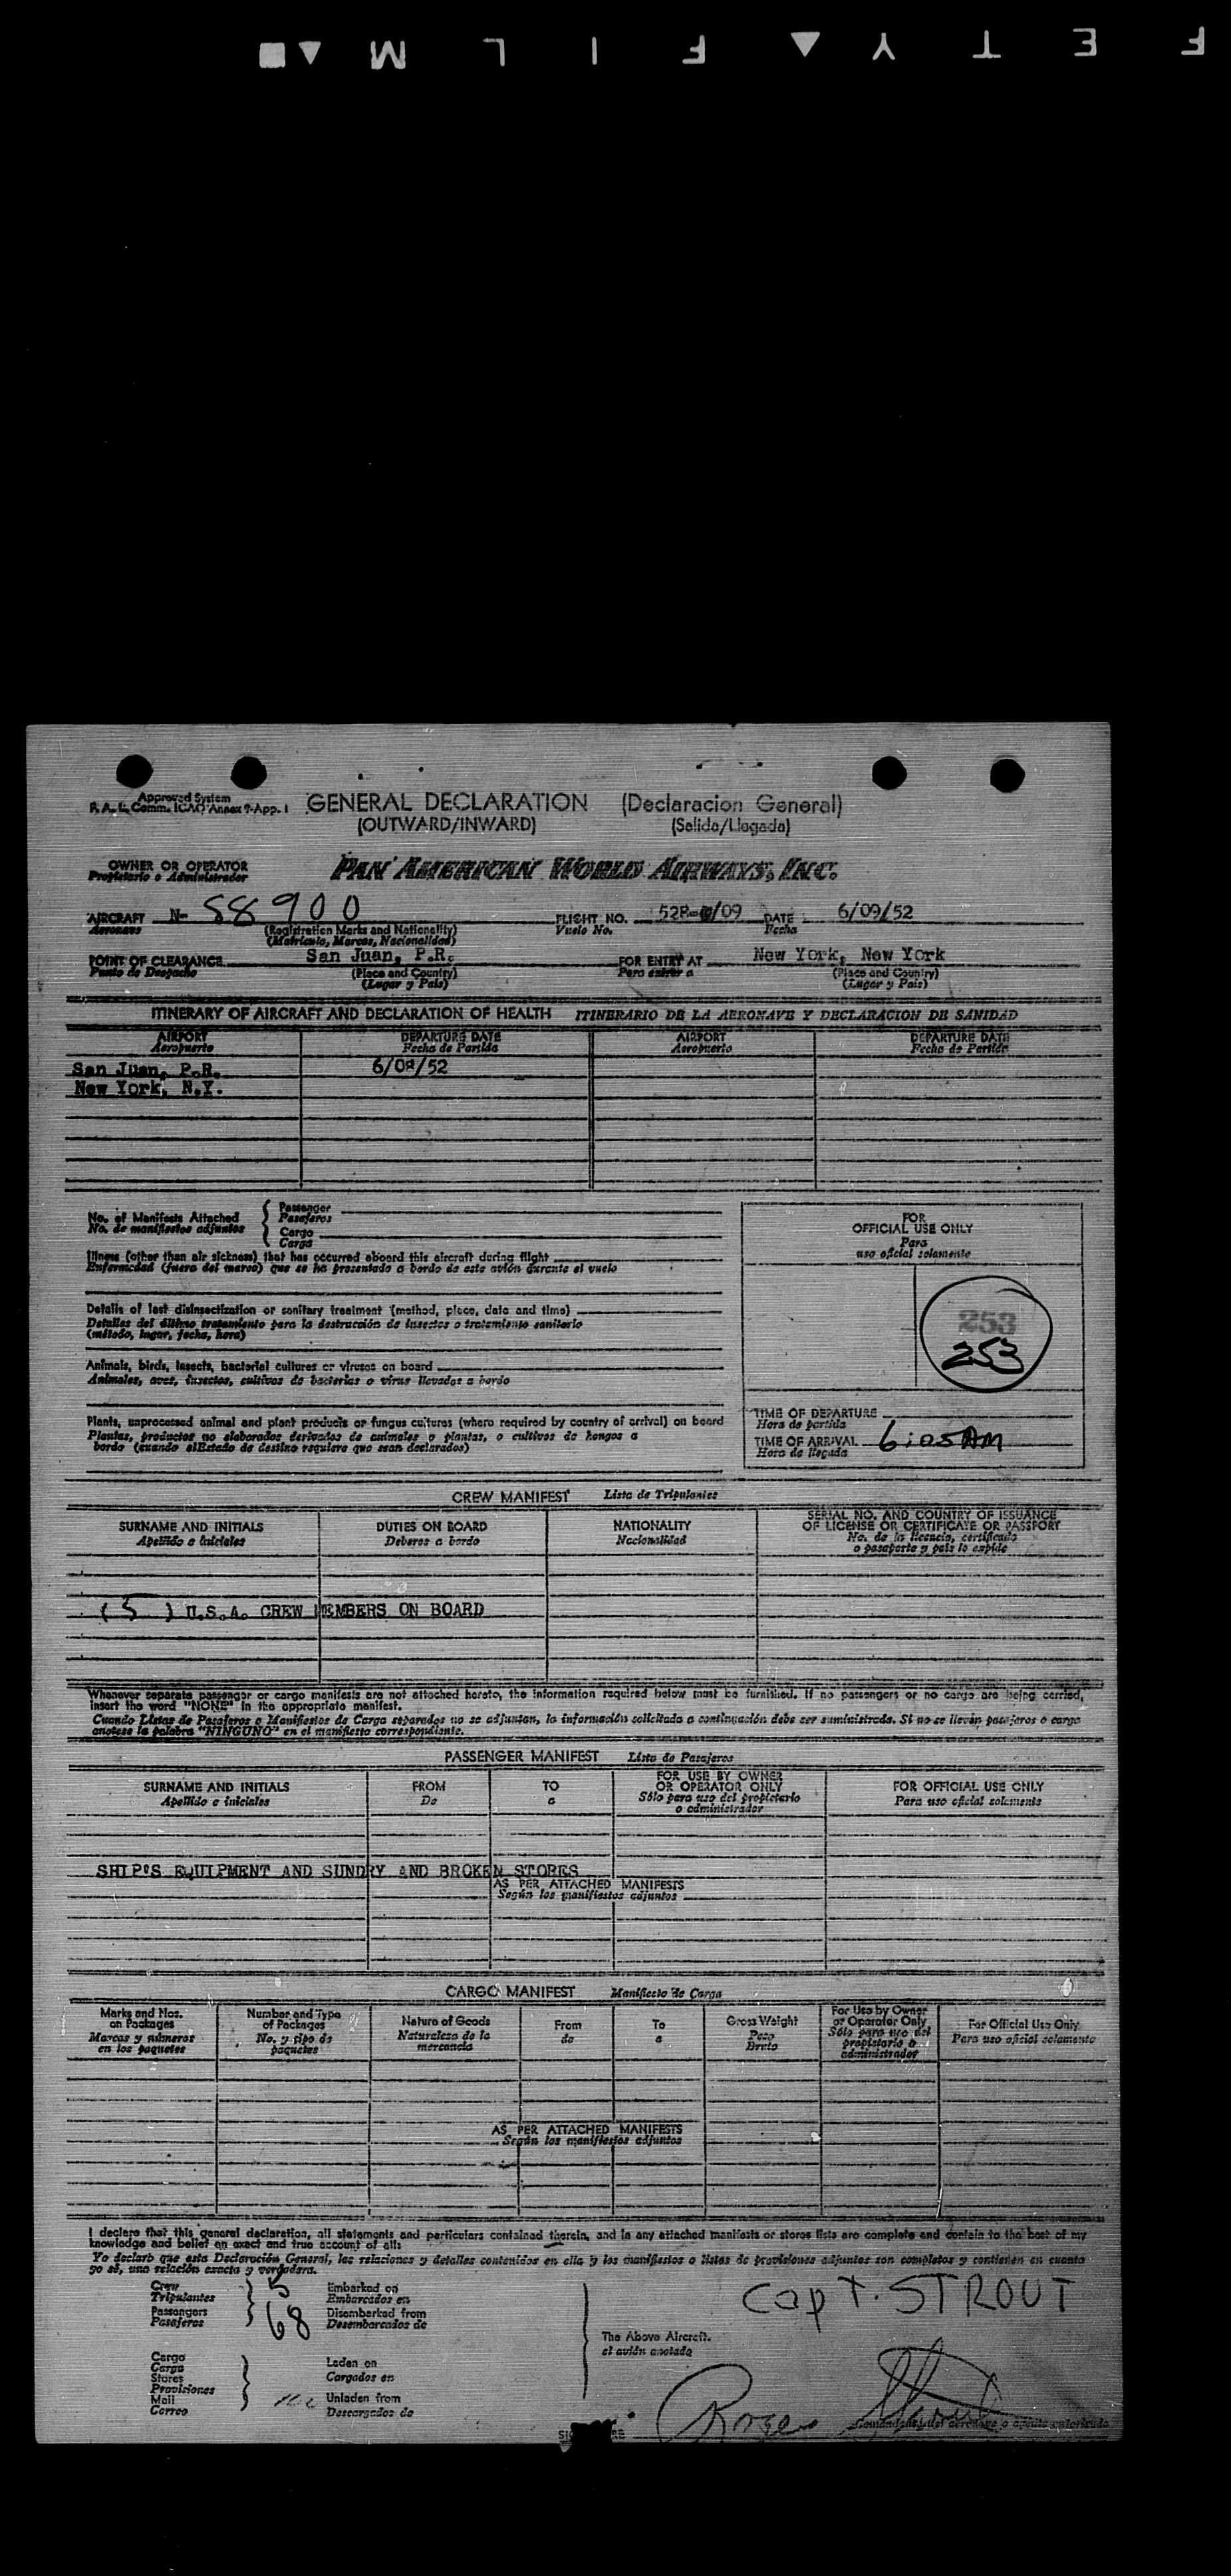 SAFETY FILM
Approved System
P. A. L. Comm. ICAO Annex 9-App. 1
GENERAL DECLARATION (Declaracion General)
(OUTWARD/INWARD) (Salida/Llegada)
OWNER OR OPERATOR
Propietario o Administrador
PAN AMERICAN WORLD AIRWAYS, INC.
AIRCRAFT N- 88900 FLIGHT NO. 528- /09 DATE 6/09/52
Aeronave (Registration Marks and Nationality) Vuelo No. Fecha
(Matricula, Marcas, Nacionalidad)
POINT OF CLEARANCE San Juan, P.R. FOR ENTRY AT New York, New York
Punto de Despacho (Place and Country) Para entrar a (Place and Country)
(Lugar y País) (Lugar y País)
ITINERARY OF AIRCRAFT AND DECLARATION OF HEALTH ITINERARIO DE LA AERONAVE Y DECLARACION DE SANIDAD
AIRPORT DEPARTURE DATE AIRPORT DEPARTURE DATE
Aeropuerto Fecha de Partida Aeropuerto Fecha de Partida
San Juan, P.R. 6/08/52
New York, N.Y.
No. of Manifests Attached
No. de manifiestos adjuntos
Passenger
Pasajeros
Cargo
Carga
Illness (other than air sickness) that has occurred aboard this aircraft during flight
Enfermedad (fuera del mareo) que se ha presentado a bordo de este avión durante el vuelo
Details of last disinsectization or sanitary treatment (method, place, date and time)
Detalles del último tratamiento para la destrucción de insectos o tratamiento sanitario
(método, lugar, fecha, hora)
Animals, birds, insects, bacterial cultures or viruses on board
Animales, aves, insectos, cultivos de bacterias o virus llevados a bordo
Plants, unprocessed animal and plant products or fungus cultures (where required by country of arrival) on board
Plantas, productos no elaborados derivados de animales o plantas, o cultivos de hongos a
bordo (cuando elEstado de destino requiera que sean declarados)
FOR
OFFICIAL USE ONLY
Para
uso oficial solamente
253
253
TIME OF DEPARTURE
Hora de partida
TIME OF ARRIVAL 6:05 AM
Hora de llegada
CREW MANIFEST Lista de Tripulantes
SURNAME AND INITIALS DUTIES ON BOARD NATIONALITY SERIAL NO. AND COUNTRY OF ISSUANCE
OF LICENSE OR CERTIFICATE OR PASSPORT
Apellido e iniciales Deberes a bordo Nacionalidad No. de la licencia, certificado
o pasaporte y país lo expide
( 5 ) U.S.A. CREW MEMBERS ON BOARD
Whenever separate passenger or cargo manifests are not attached hereto, the information required below must be furnished. If no passengers or no cargo are being carried,
insert the word "NONE" in the appropriate manifest.
Cuando Listas de Pasajeros o Manifiestos de Carga separados no se adjuntan, la información solicitada a continuación debe ser suministrada. Si no se llevan pasajeros o carga
anotese la palabra "NINGUNO" en el manifiesto correspondiente.
PASSENGER MANIFEST Lista de Pasajeros
SURNAME AND INITIALS FROM TO FOR USE BY OWNER
OR OPERATOR ONLY FOR OFFICIAL USE ONLY
Apellido e iniciales De a Sólo para uso del propietario
o administrador Para uso oficial solamente
SHIP'S EQUIPMENT AND SUNDRY AND BROKEN STORES
AS PER ATTACHED MANIFESTS
Según los manifiestos adjuntos
CARGO MANIFEST Manifiesto de Carga
Marks and Nos.
on Packages
Marcas y números
en los paquetes
Number and Type
of Packages
No. y tipo de
paquetes
Nature of Goods
Naturaleza de la
mercancía
From
de
To
a
Gross Weight
Peso
Bruto
For Use by Owner
or Operator Only
Sólo para uso del
propietario o
administrador
For Official Use Only
Para uso oficial solamente
AS PER ATTACHED MANIFESTS
Según los manifiestos adjuntos
I declare that this general declaration, all statements and particulars contained therein, and in any attached manifests or stores lists are complete and contain to the best of my
knowledge and belief an exact and true account of all:
Yo declarb que esta Declaración General, las relaciones y detalles contenidos en ella y los manifiestos o listas de provisiones adjuntos son completos y contienen en cuanto
yo sé, una relación exacta y verdadera.
Crew 5 Embarked on
Tripulantes Embarcados en
Passengers 68 Disembarked from
Pasajeros Desembarcados de
Capt. STROUT
The Above Aircraft.
el avión anotado
Cargo Laden on
Carga Cargados en
Stores
Provisiones
Mail Unladen from
Correo Descargados de
Roger Strout